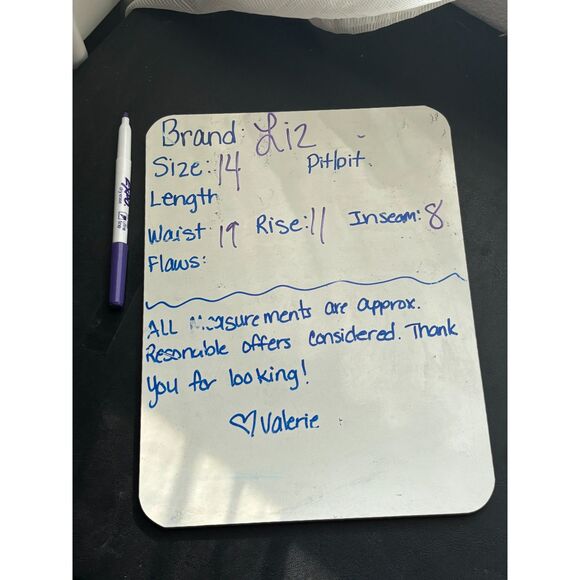 Brand: Liz
Size: 14 Pit/pit.
Length
Waist 19 Rise: 11 Inseam: 8
Flaws:
ALL Measurements are approx.
Resonable offers considered. Thank
you for looking!
♡ Valerie